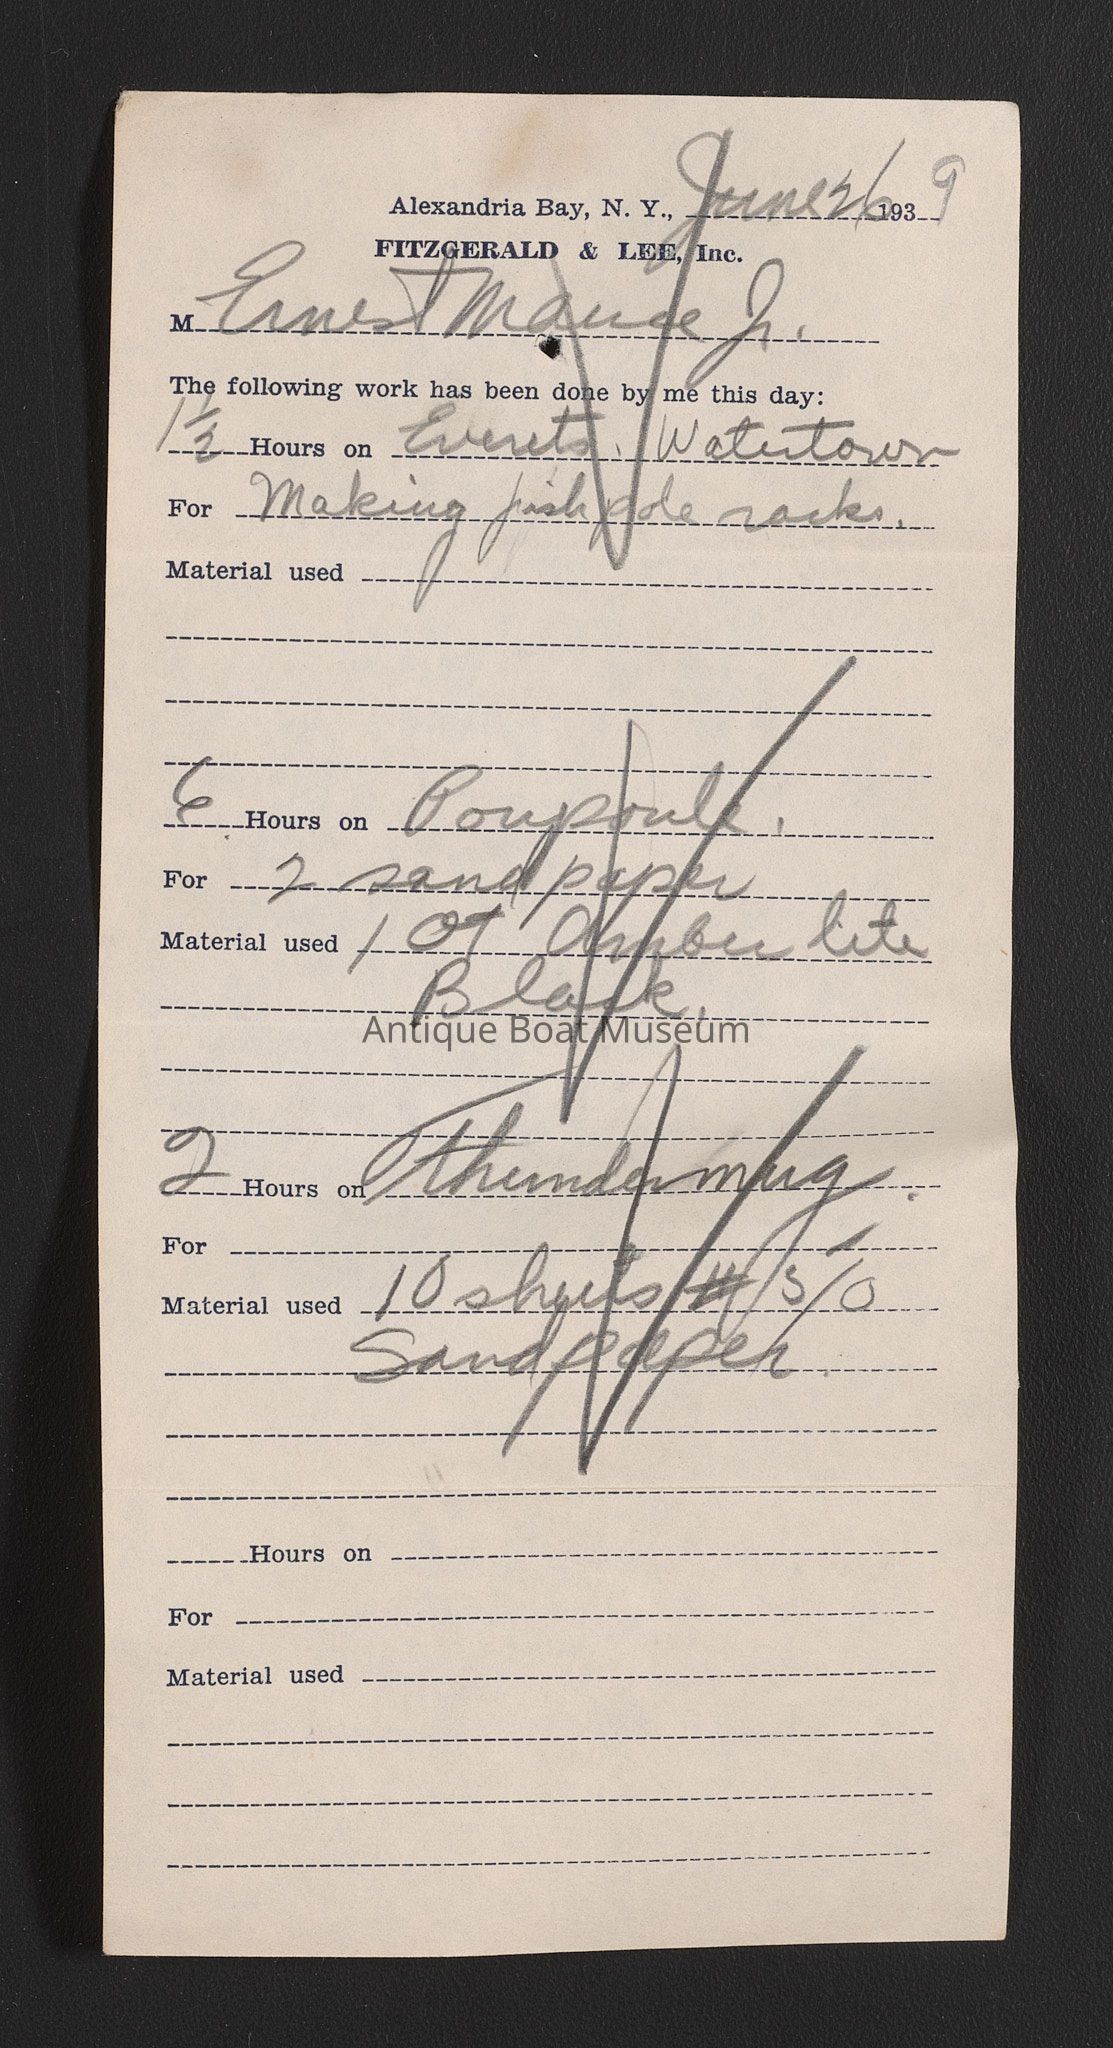 Alexandria Bay, N. Y., June 26 1939
FITZGERALD & LEE, Inc.
M Ernest Mause Jr.
The following work has been done by me this day:
1 1/2 Hours on Everets. Watertown
For Making fish pole racks.
Material used
6 Hours on Poupoule.
For 2 sand paper
Material used 1 QT Amber lite
Black.
Antique Boat Museum
2 Hours on Thundermug.
For
Material used 10 sheets # 5/0
Sandpaper.
Hours on
For
Material used